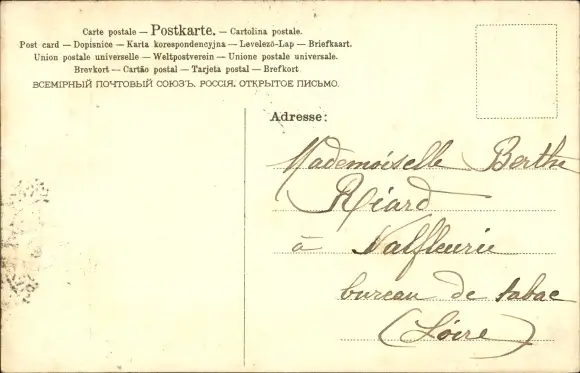 Carte postale — Postkarte. — Cartolina postale.
Post card — Dopisnice — Karta korespondencyjna — Levelező-Lap — Briefkaart.
Union postale universelle — Weltpostverein — Unione postale universale.
Brevkort — Cartão postal — Tarjeta postal — Brefkort
ВСЕМІРНЫЙ ПОЧТОВЫЙ СОЮЗЪ. РОССІЯ. ОТКРЫТОЕ ПИСЬМО.
Adresse:
Mademoiselle Berthe
Riard
à Valfleurie
bureau de tabac
(Loire)